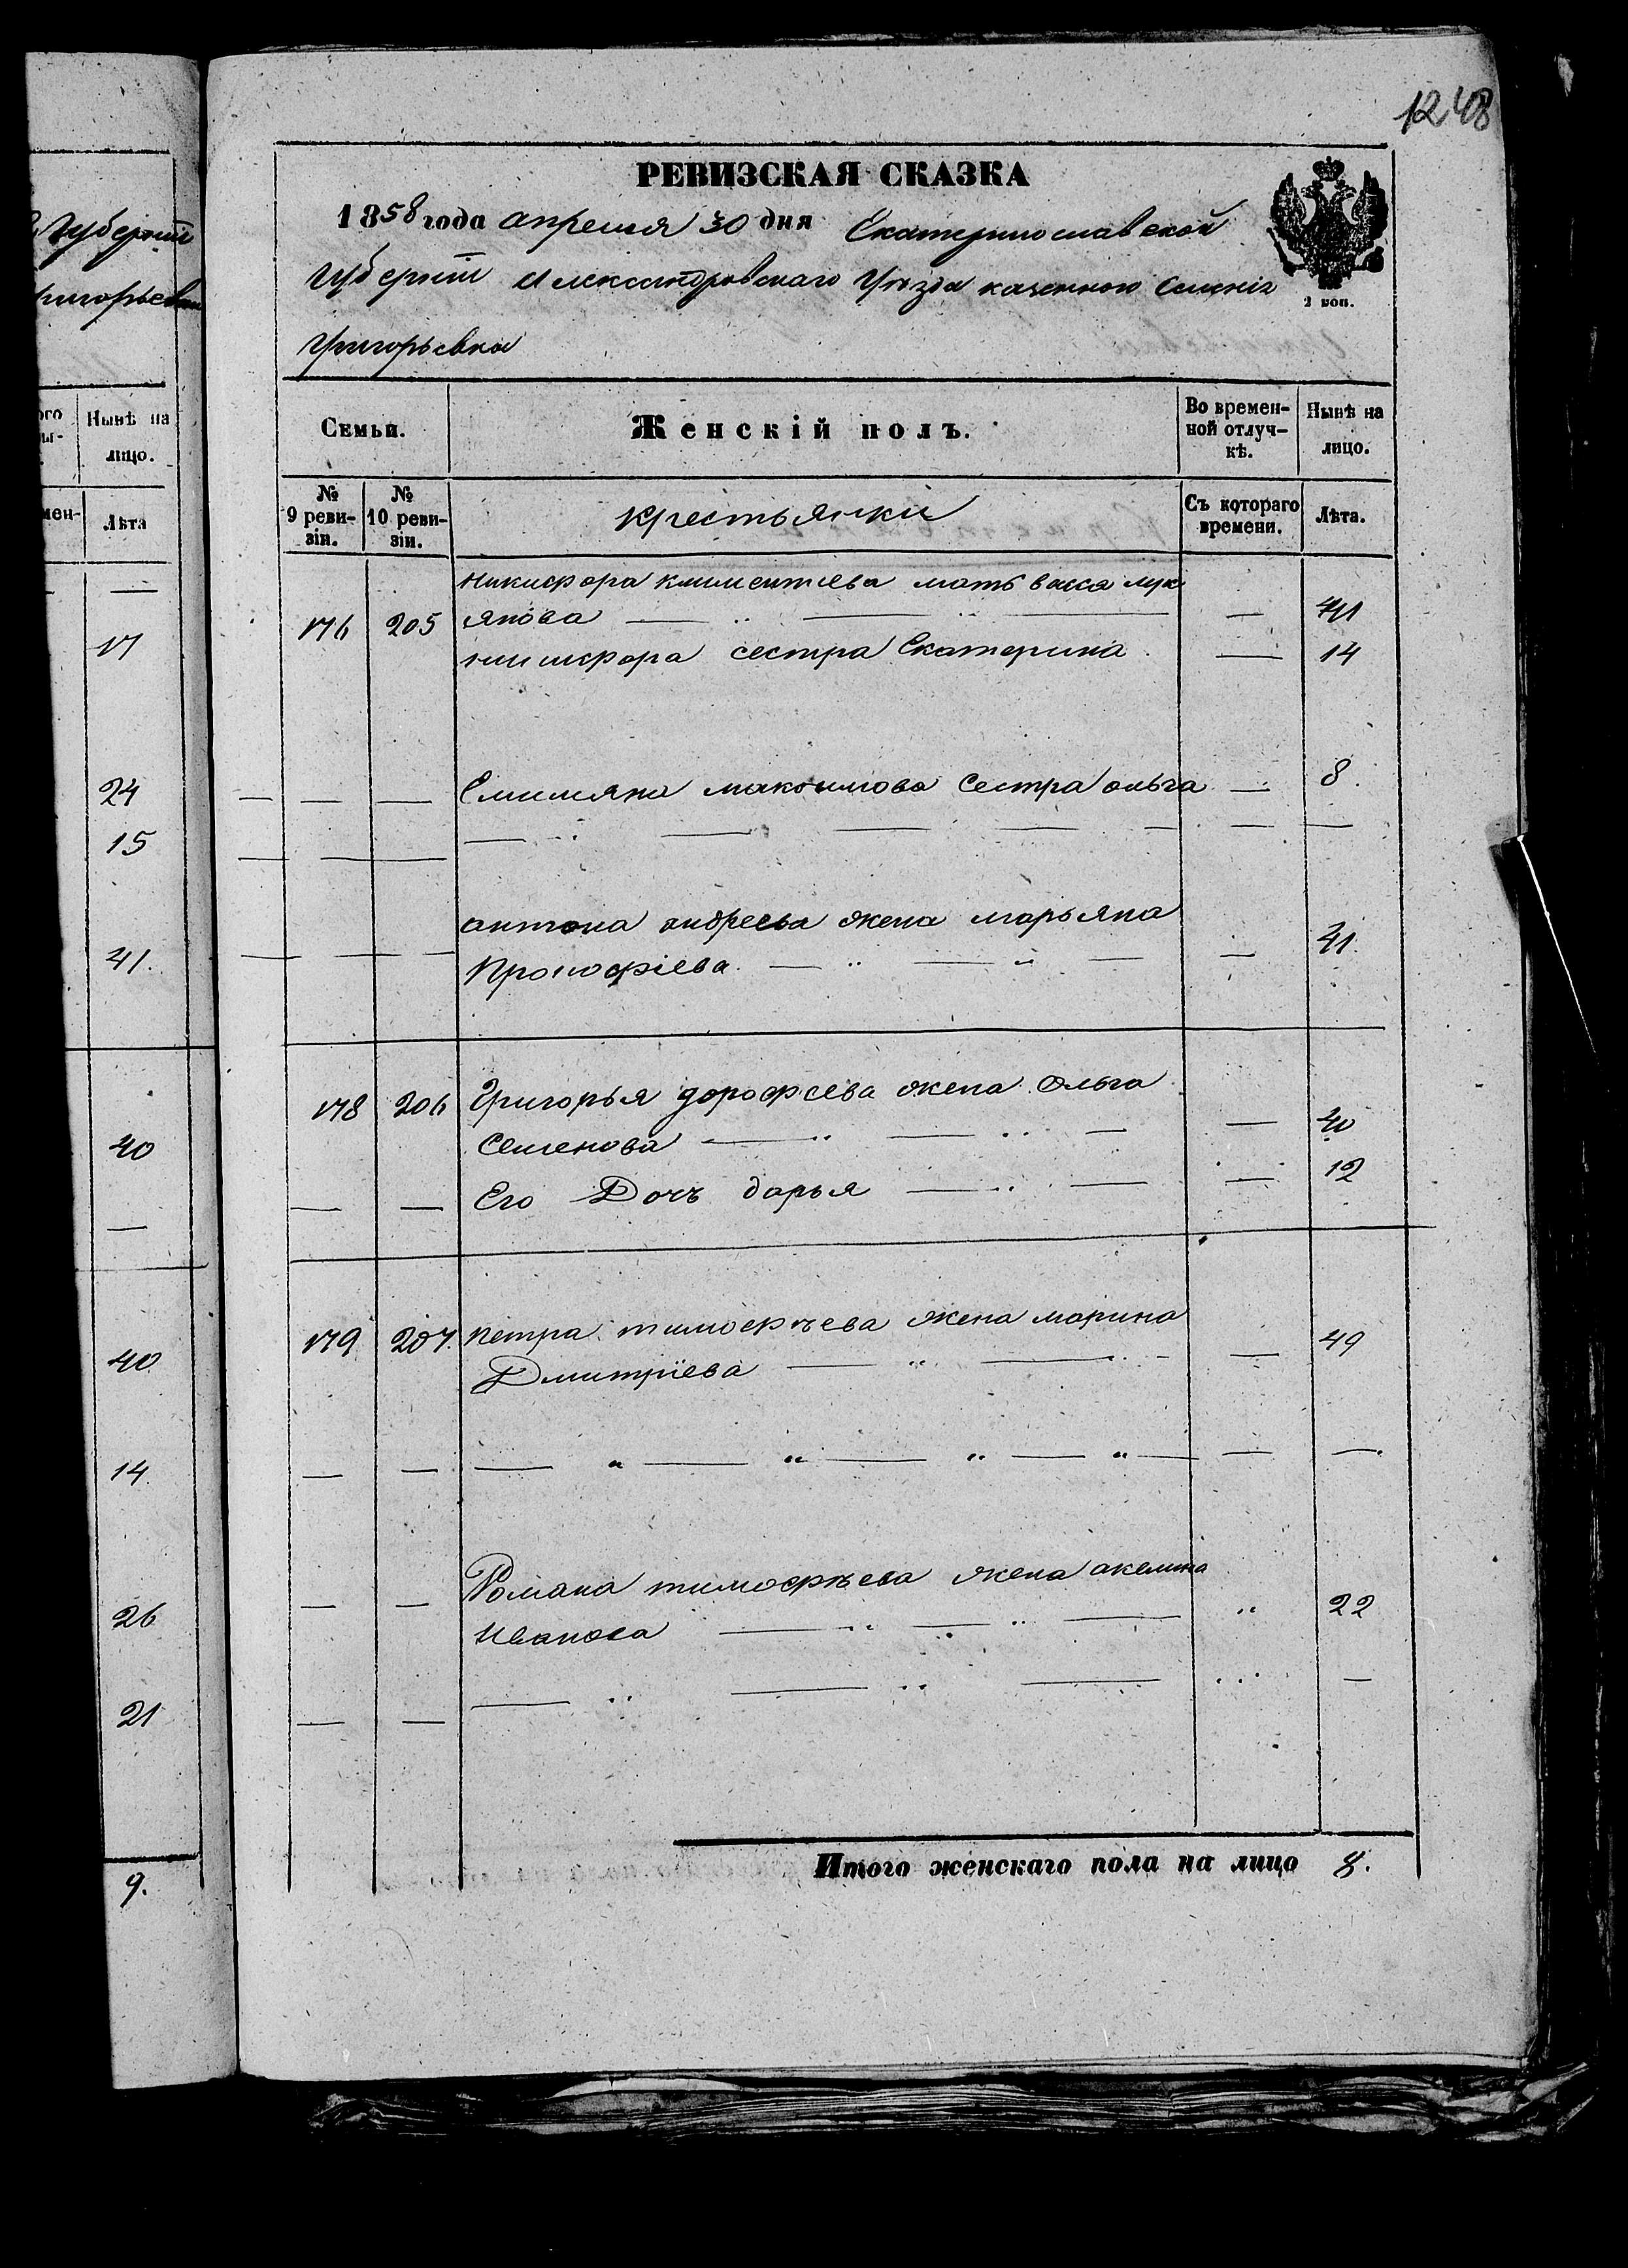 1248
РЕВИЗСКАЯ СКАЗКА
1858 года апреля 30 дня Екатеринославской
Губерніи Александровскаго Уѣзда казенного Селенія
Григорьевки
2 коп.
Губерніи
Григорьевки
Семьи.
Женскій полъ.
Во времен-
ной отлуч-
кѣ.
Нынѣ на
лицо.
№
9 реви-
зіи.
№
10 реви-
зіи.
крестьянки
Съ котораго
времени.
Лѣта.
Никифора климентьева мать васса лук
176 205 янова — — — 41
никифора сестра Екатерина — 14
— — — Емильяна максимова Сестра ольга — 8.
антона андреева жена марьяна
— — — Прокофіева — — — — 41.
178 206 Григорья дорофеева жена Ольга
Семенова — — — — 40
— — Его Дочь дарья — — — 12
179 207. Петра тимофѣева жена марина
Дмитріева — — — — 49
— — Романа тимофѣева жена акелина
Иванова — — — 22
Итого женскаго пола на лицо 8.
Нынѣ на
лицо.
Лѣта
17
24
15
41.
40
40
14
26
21
9.